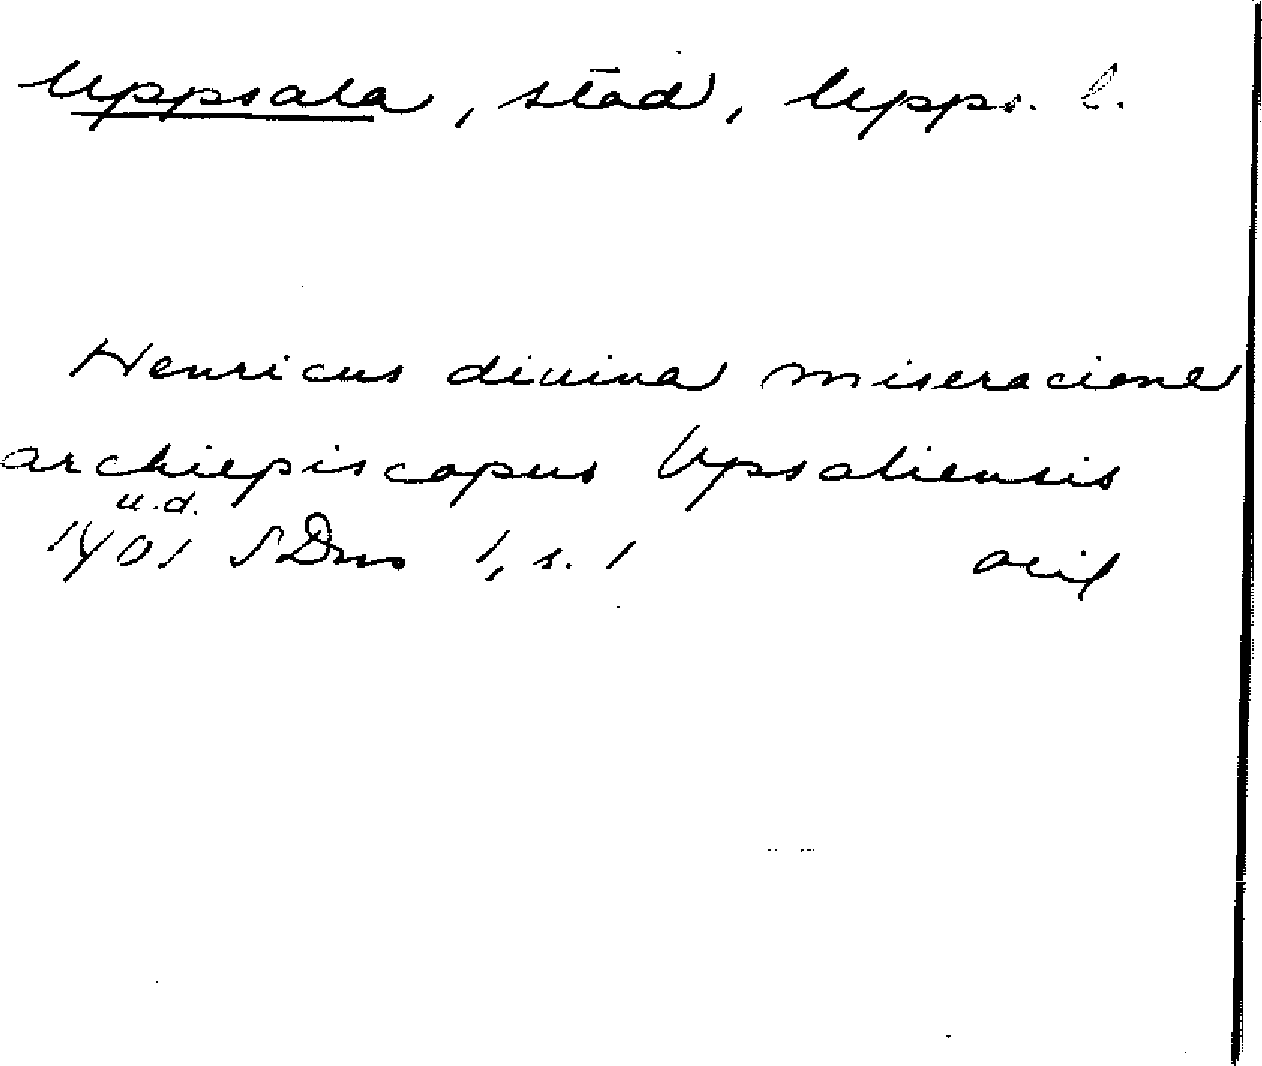 Uppsala, stad, Upps. l.
Henricus diuina miseracione
archiepiscopus Upsaliensis
u.d.
1401 SDns 1, s. 1 avil